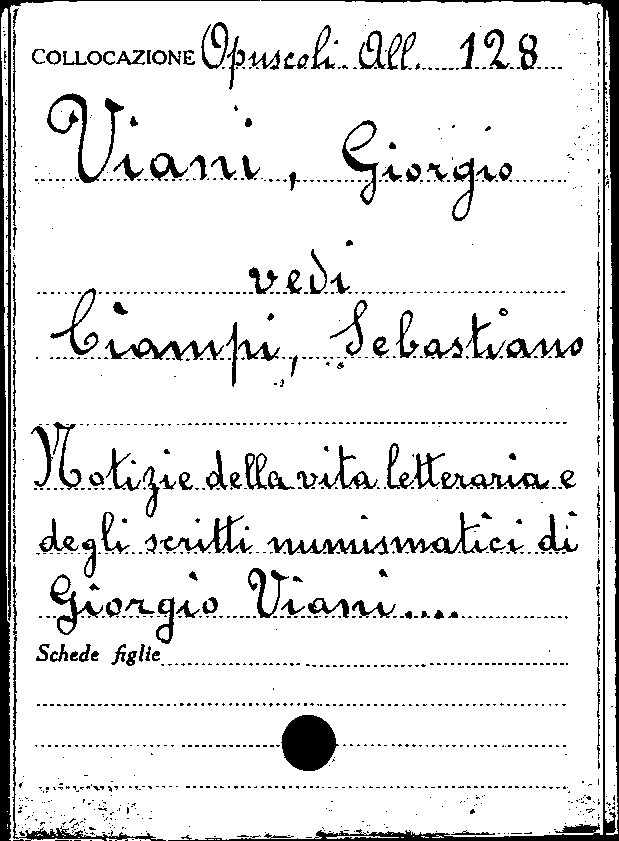 COLLOCAZIONE Opuscoli All. 128
Viani, Giorgio
vedi
Ciampi, Sebastiano
Notizie della vita letteraria e
degli scritti numismatici di
Giorgio Viani....
Schede figlie